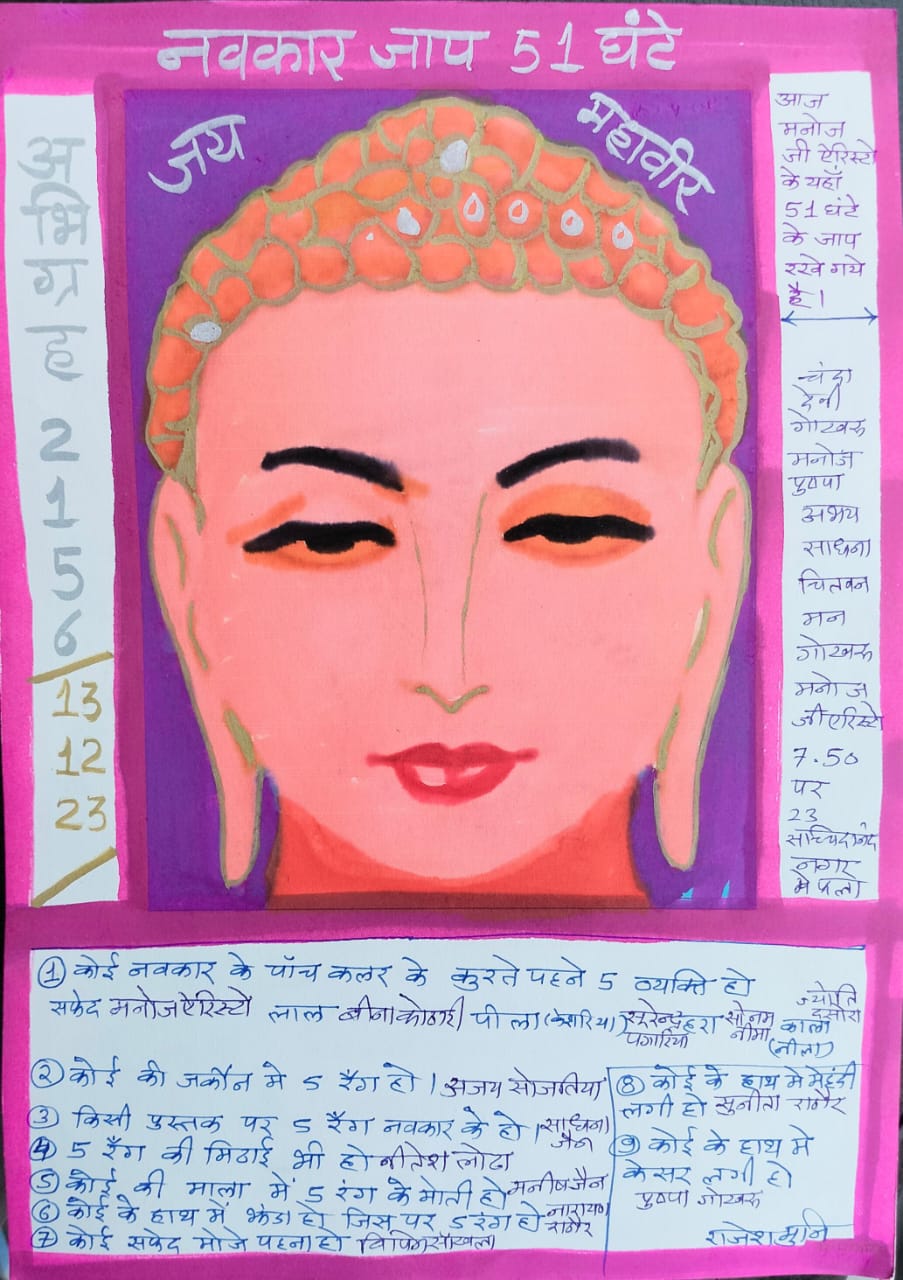 नवकार जाप 51 घंटे
जय महावीर
अ
भि
ग्र
ह
2
1
5
6
13
12
23
आज
मनोज
जी ऐरिस्टो
के यहाँ
51 घंटे
के जाप
रखे गये
है।
चंदा
देवी
गोखरू
मनोज
पुष्पा
अभय
साधना
चितवन
मन
गोखरू
मनोज
जी एरिस्टो
7.50
पर
23
सच्चिदानंद
नगर
मे फला
① कोई नवकार के पाँच कलर के कुरते पहने 5 व्यक्ति हो
सफेद मनोज ऐरिस्टो लाल बीना कोठारी पीला (केशरिया) सुरेन्द्र पगारिया हरा सोनम नीमा काला (नीला) ज्योति दसोरा
② कोई की जर्कीन मे 5 रैंग हो। अजय सोजतिया
③ किसी पुस्तक पर 5 रैंग नवकार के हो। साधना जैन
④ 5 रैंग की मिठाई भी हो नीतेश लोढा
⑤ कोई की माला में 5 रंग के मोती हो मनीष जैन
⑥ कोई के हाथ में झंडा हो जिस पर 5 रंग हो नारायण राठौर
⑦ कोई सफेद मोजे पहना हो विपिन सांखला
⑧ कोई के हाथ मे मेहंदी
लगी हो सुनीता राठौर
⑨ कोई के हाथ मे
केसर लगी हो
पुष्पा गोखरू
राजेश मुनि